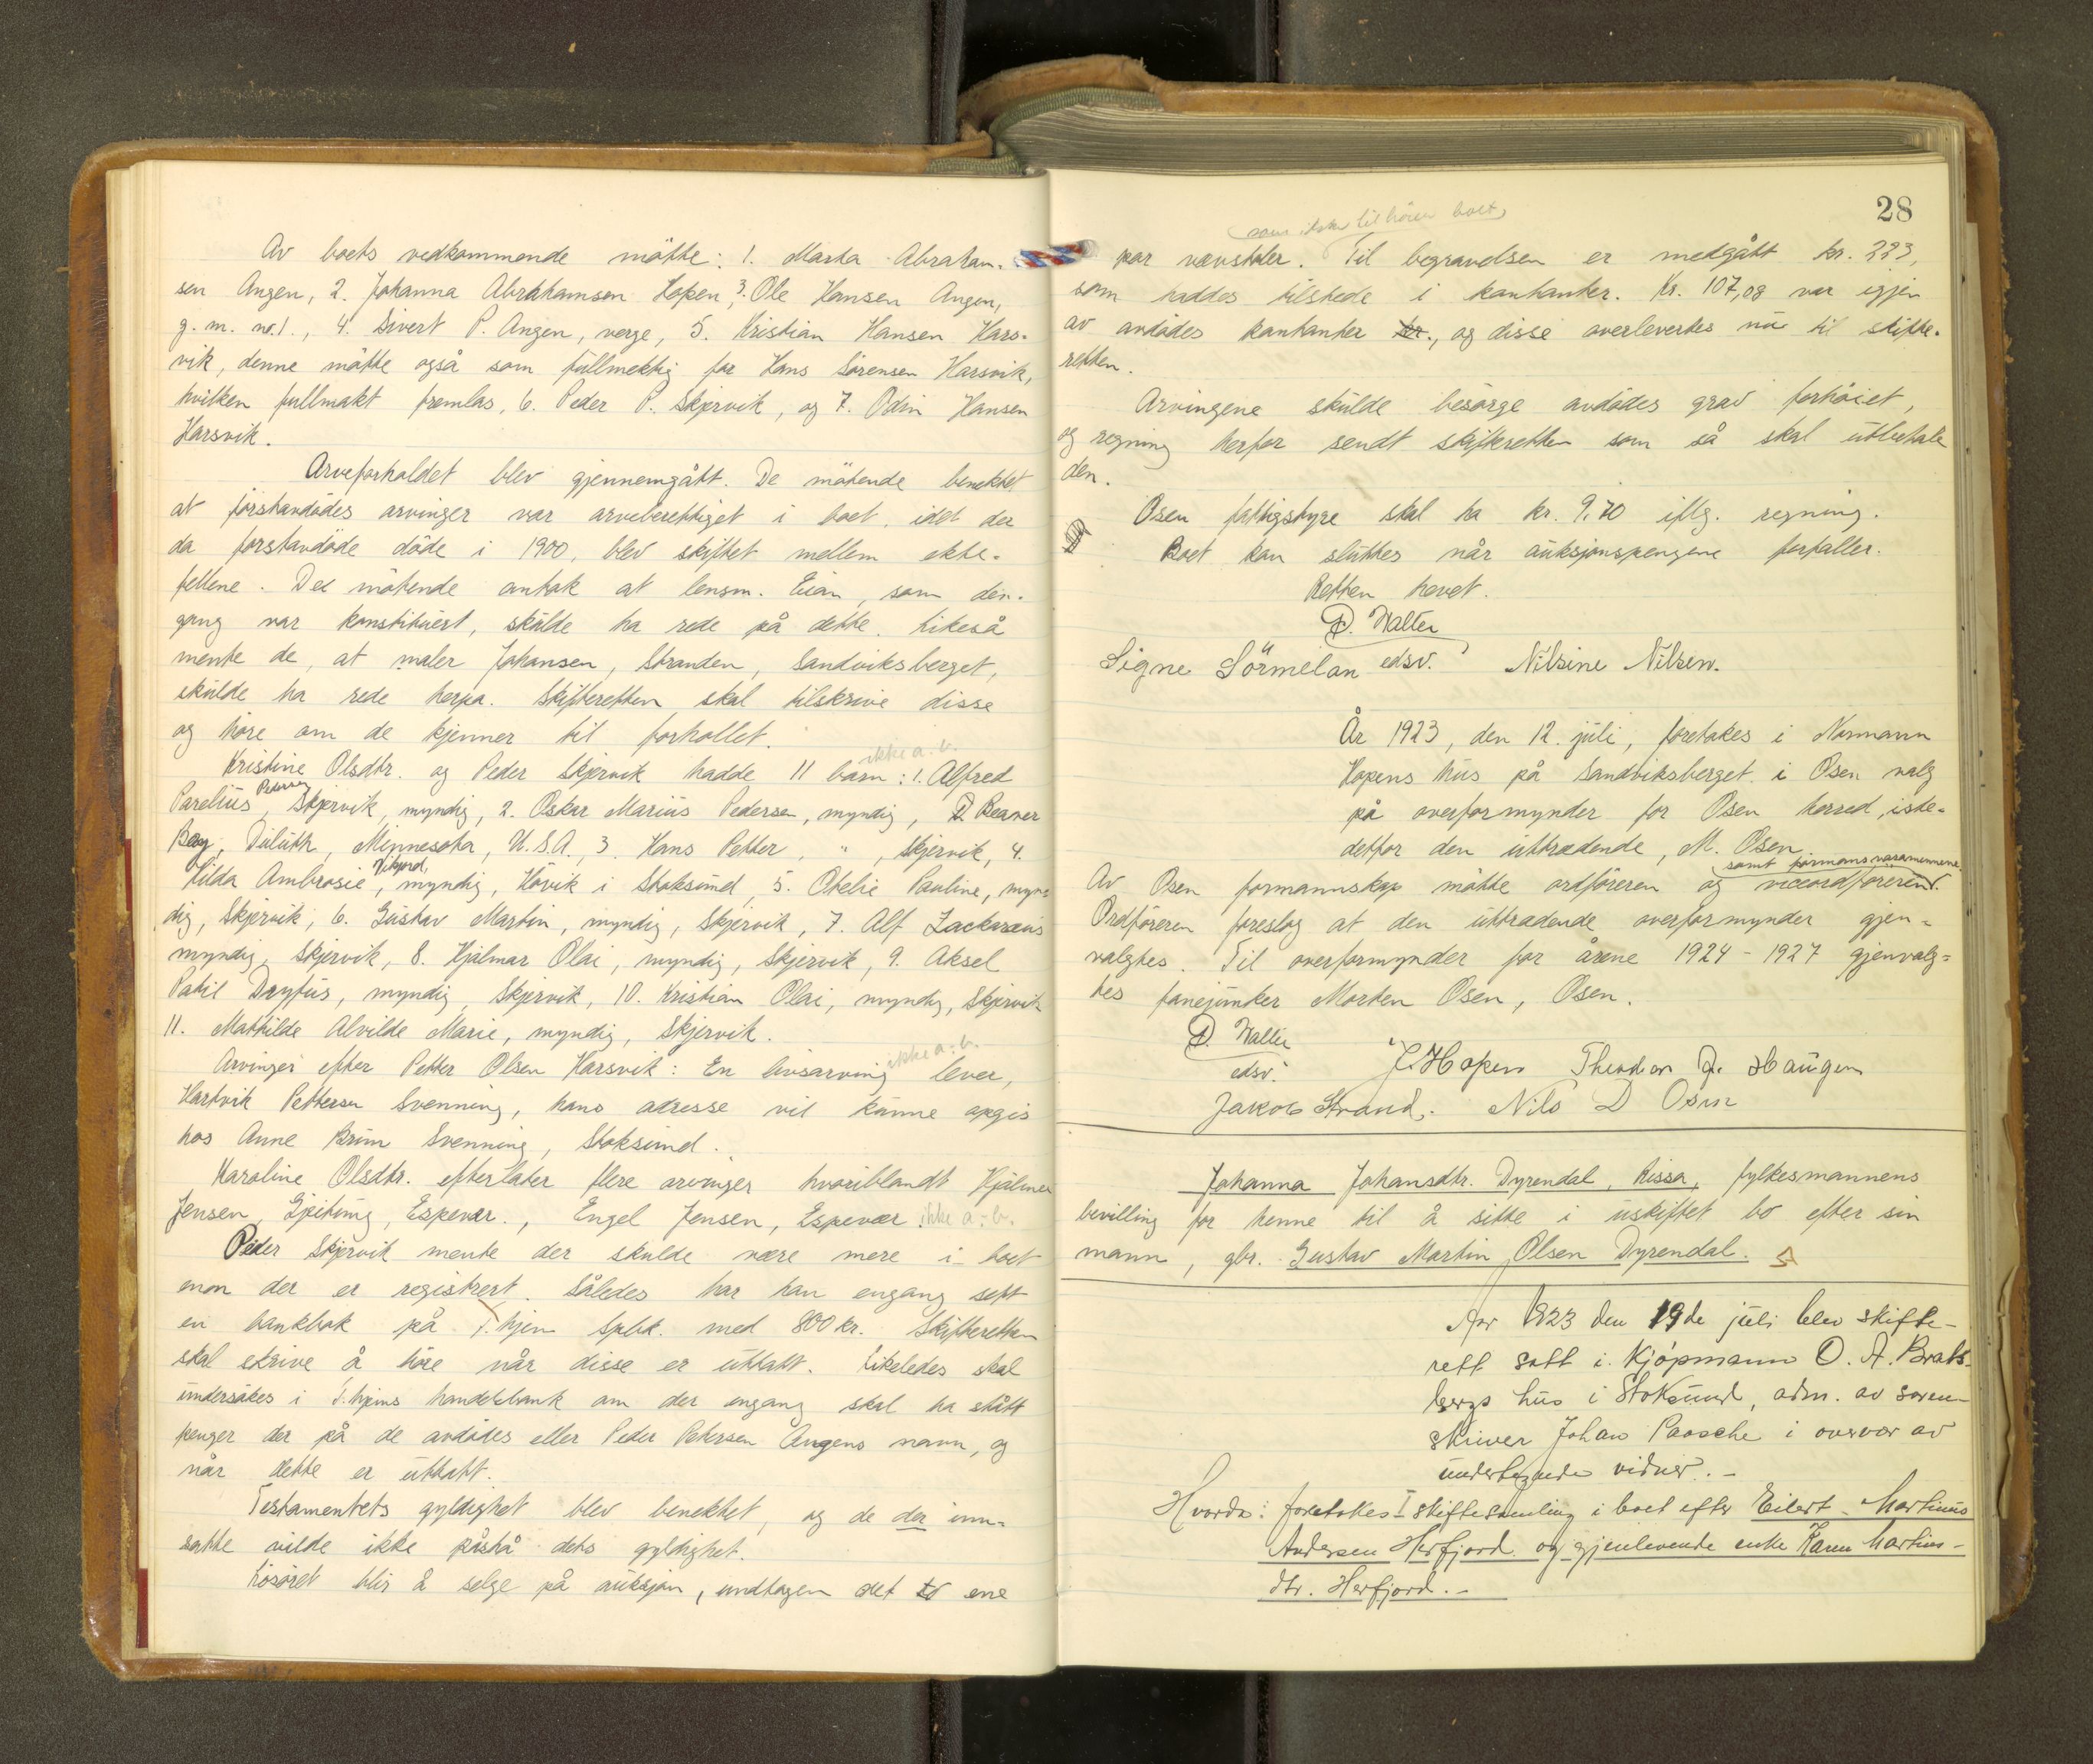 Av boets vedkommende møtte: 1. Marta Abraham-
sen Angen, 2. Johanna Abrahamsen Hopen, 3. Ole Hansen Angen,
g. m. no. 1., 4. Sivert P. Angen, verge, 5. Kristian Hansen Hars-
vik, denne møtte også som fullmektig for Hans Sørensen Harsvik,
hvilken fullmakt fremlas, 6. Peder P. Skjervik, og 7. Odin Hansen
Harsvik.
Arveforholdet blev gjennemgått. De møtende benektet
at førstavdødes arvinger var arveberettiget i boet, idet der
da førstavdøde døde i 1900, blev skiftet mellem ekte-
fellene. De møtende antok at lensm. Eian, som den-
gang var konstituert, skulde ha rede på dette. Likeså
mente de, at maler Johansen, Stranden, Sandviksberget,
skulde ha rede herpa. Skifteretten skal tilskrive disse
og høre om de kjenner til forhollet.
ikke a. b.
Kristine Olsdtr. og Peder Skjervik hadde 11 barn: 1. Alfred
Parelius Pedersen Skjervik, myndig, 2. Oskar Marius Pedersen, myndig, Beaver
Bay, Duluth, Minnesota, U.S.A., 3. Hans Petter, " , Skjervik, 4.
Hilda Ambrosie Vikjord, myndig, Høvik i Stoksund, 5. Otelie Pauline, myn-
dig, Skjervik, 6. Gustav Martin, myndig, Skjervik, 7. Alf Zackarius
myndig, Skjervik, 8. Hjalmar Olai, myndig, Skjervik, 9. Aksel
Patil Dryfus, myndig, Skjervik, 10. Kristian Olai, myndig, Skjervik
11. Mathilde Alvilde Marie, myndig, Skjervik.
Arvinger efter Petter Olsen Harsvik: En livsarving ikke a. b. lever,
Hartvik Pettersen Svenning, hans adresse vil kunne opgis
hos Anne Brun Svenning, Stoksund.
Karoline Olsdtr. efterlater flere arvinger hvoriblandt Hjalmar
Jensen, Gjeitung, Espevær., Engel Jensen, Espevær. ikke a. b.
Peder Skjervik mente der skulde være mere i boet
enn der er registrert. Således har han engang sett
en bankbok på T.hjem Spbk. med 800 kr. Skifteretten
skal skrive å høre når disse er uttatt. Likeledes skal
undersøkes i T.hjems handelsbank om der engang skal ha stått
penger der på de avdødes eller Peder Petersen Angens navn, og
når dette er uttatt.
Testamentets gyldighet blev benektet, og de der inn-
satte vilde ikke påstå dets gyldighet.
Løsøret blir å selge på auksjon, undtagen det ene
28
som ikke tilhører boet,
par vevstoler. Til begravelsen er medgått kr. 223,
som haddes tilstede i kontanter. Kr. 107,08 var igjen
av avdødes kontanter, og disse overlevertes nu til skifte-
retten.
Arvingene skulde besørge avdødes grav forhøiet,
og regning herfor sendt skifteretten som så skal utbetale
den.
Osen fattigstyre skal ha kr. 9,70 iflg. regning.
Boet kan sluttes når auksjonspengene forfaller.
Retten hevet.
D. Walter
Signe Sörmelan edsv. Nilsine Nilsen.
År 1923, den 12. juli, foretokes i Normann
Hopens hus på Sandviksberget i Osen valg
på overformynder for Osen herred, iste-
detfor den uttredende, M. Osen.
samt formans varamennene
Av Osen formannskap møtte ordføreren og viceordføreren.
Ordføreren foreslog at den uttredende overformynder gjen-
valgtes. Til overformynder for årene 1924 - 1927 gjenvalg-
tes fanejunker Morten Osen, Osen.
D. Walter
edsv. J. Hopen Theodor J. Haugen
Jakob Strand. Nils D Osen
Johanna Johansdtr. Dyrendal, Rissa, fylkesmannens
bevilling for henne til å sitte i uskiftet bo efter sin
mann, gbr. Gustav Martin Olsen Dyrendal.
Aar 1923 den 19de juli blev skifte-
rett satt i Kjøpmann O. A. Brats-
bergs hus i Stoksund, adm. av soren-
skriver Johan Paasche i overvær av
undertegnede vidner. -
Hvorda: foretokes I skiftesamling i boet efter Eilert Martinus
Andersen Herfjord og gjenlevende enke Karen Martins-
dtr. Herfjord. -